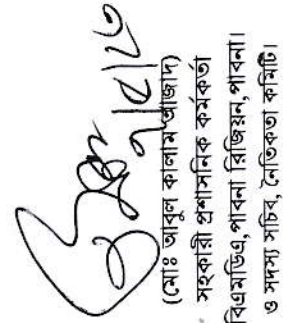 ৭/৫/২৩
(মোঃ আবুল কালাম আজাদ)
সহকারী প্রশাসনিক কর্মকর্তা
বিএমডিএ, পাবনা রিজিয়ন, পাবনা।
ও সদস্য সচিব, নৈতিকতা কমিটি।